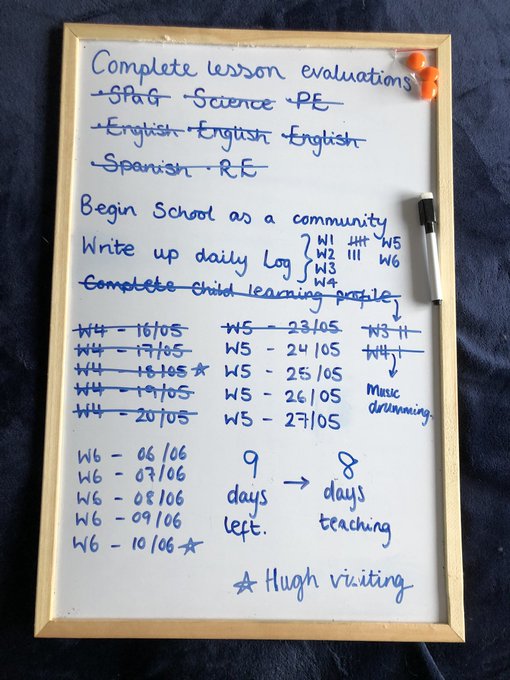 Complete lesson evaluations
• SPaG • Science • PE
• English • English • English
• Spanish • RE
Begin School as a community
Write up daily Log } W1 W2 W3 W4 卌 III W5 W6
Complete child learning profile
W4 - 16/05 W5 - 23/05 W3 II
W4 - 17/05 W5 - 24/05 W4 I
W4 - 18/05 ☆ W5 - 25/05
W4 - 19/05 W5 - 26/05 Music
W4 - 20/05 W5 - 27/05 drumming.
W6 - 06/06
W6 - 07/06
W6 - 08/06
W6 - 09/06
W6 - 10/06 ☆
9 days left. → 8 days teaching
☆ Hugh visiting